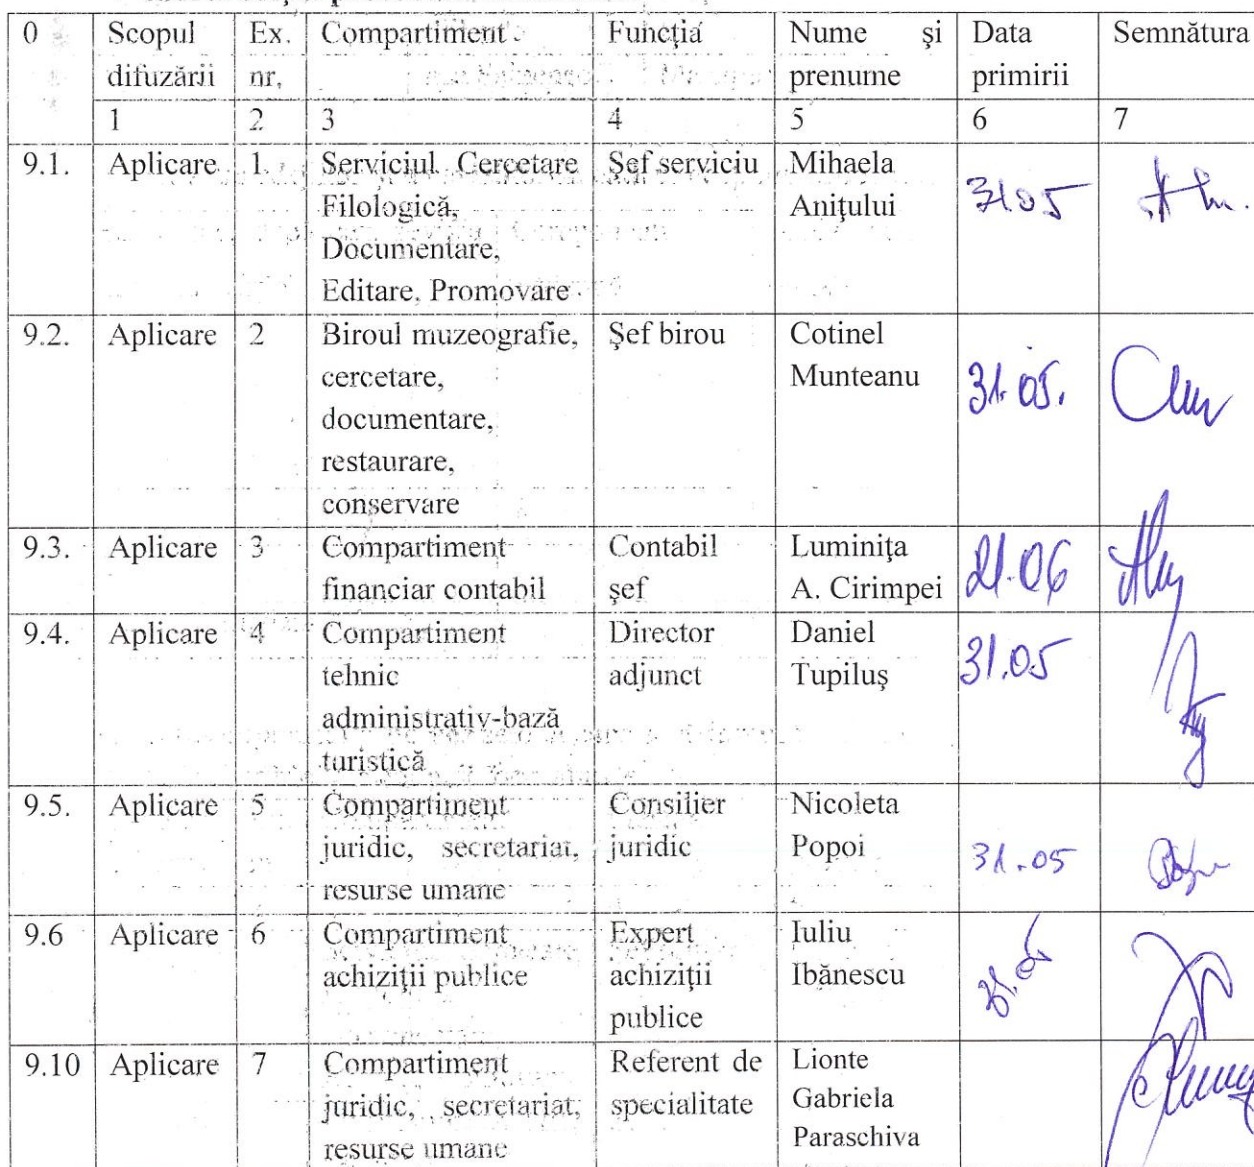 0 Scopul difuzării Ex. nr. Compartiment Funcţia Nume şi prenume Data primirii Semnătura
1 2 3 4 5 6 7
9.1. Aplicare 1 Serviciul Cercetare Filologică, Documentare, Editare, Promovare Şef serviciu Mihaela Aniţului 31.05
9.2. Aplicare 2 Biroul muzeografie, cercetare, documentare, restaurare, conservare Şef birou Cotinel Munteanu 31.05.
9.3. Aplicare 3 Compartiment financiar contabil Contabil şef Luminiţa A. Cirimpei 21.06
9.4. Aplicare 4 Compartiment tehnic administrativ-bază turistică Director adjunct Daniel Tupiluş 31.05
9.5. Aplicare 5 Compartiment juridic, secretariat, resurse umane Consilier juridic Nicoleta Popoi 31.05
9.6 Aplicare 6 Compartiment achiziţii publice Expert achiziţii publice Iuliu Ibănescu 31.05
9.10 Aplicare 7 Compartiment juridic, secretariat, resurse umane Referent de specialitate Lionte Gabriela Paraschiva